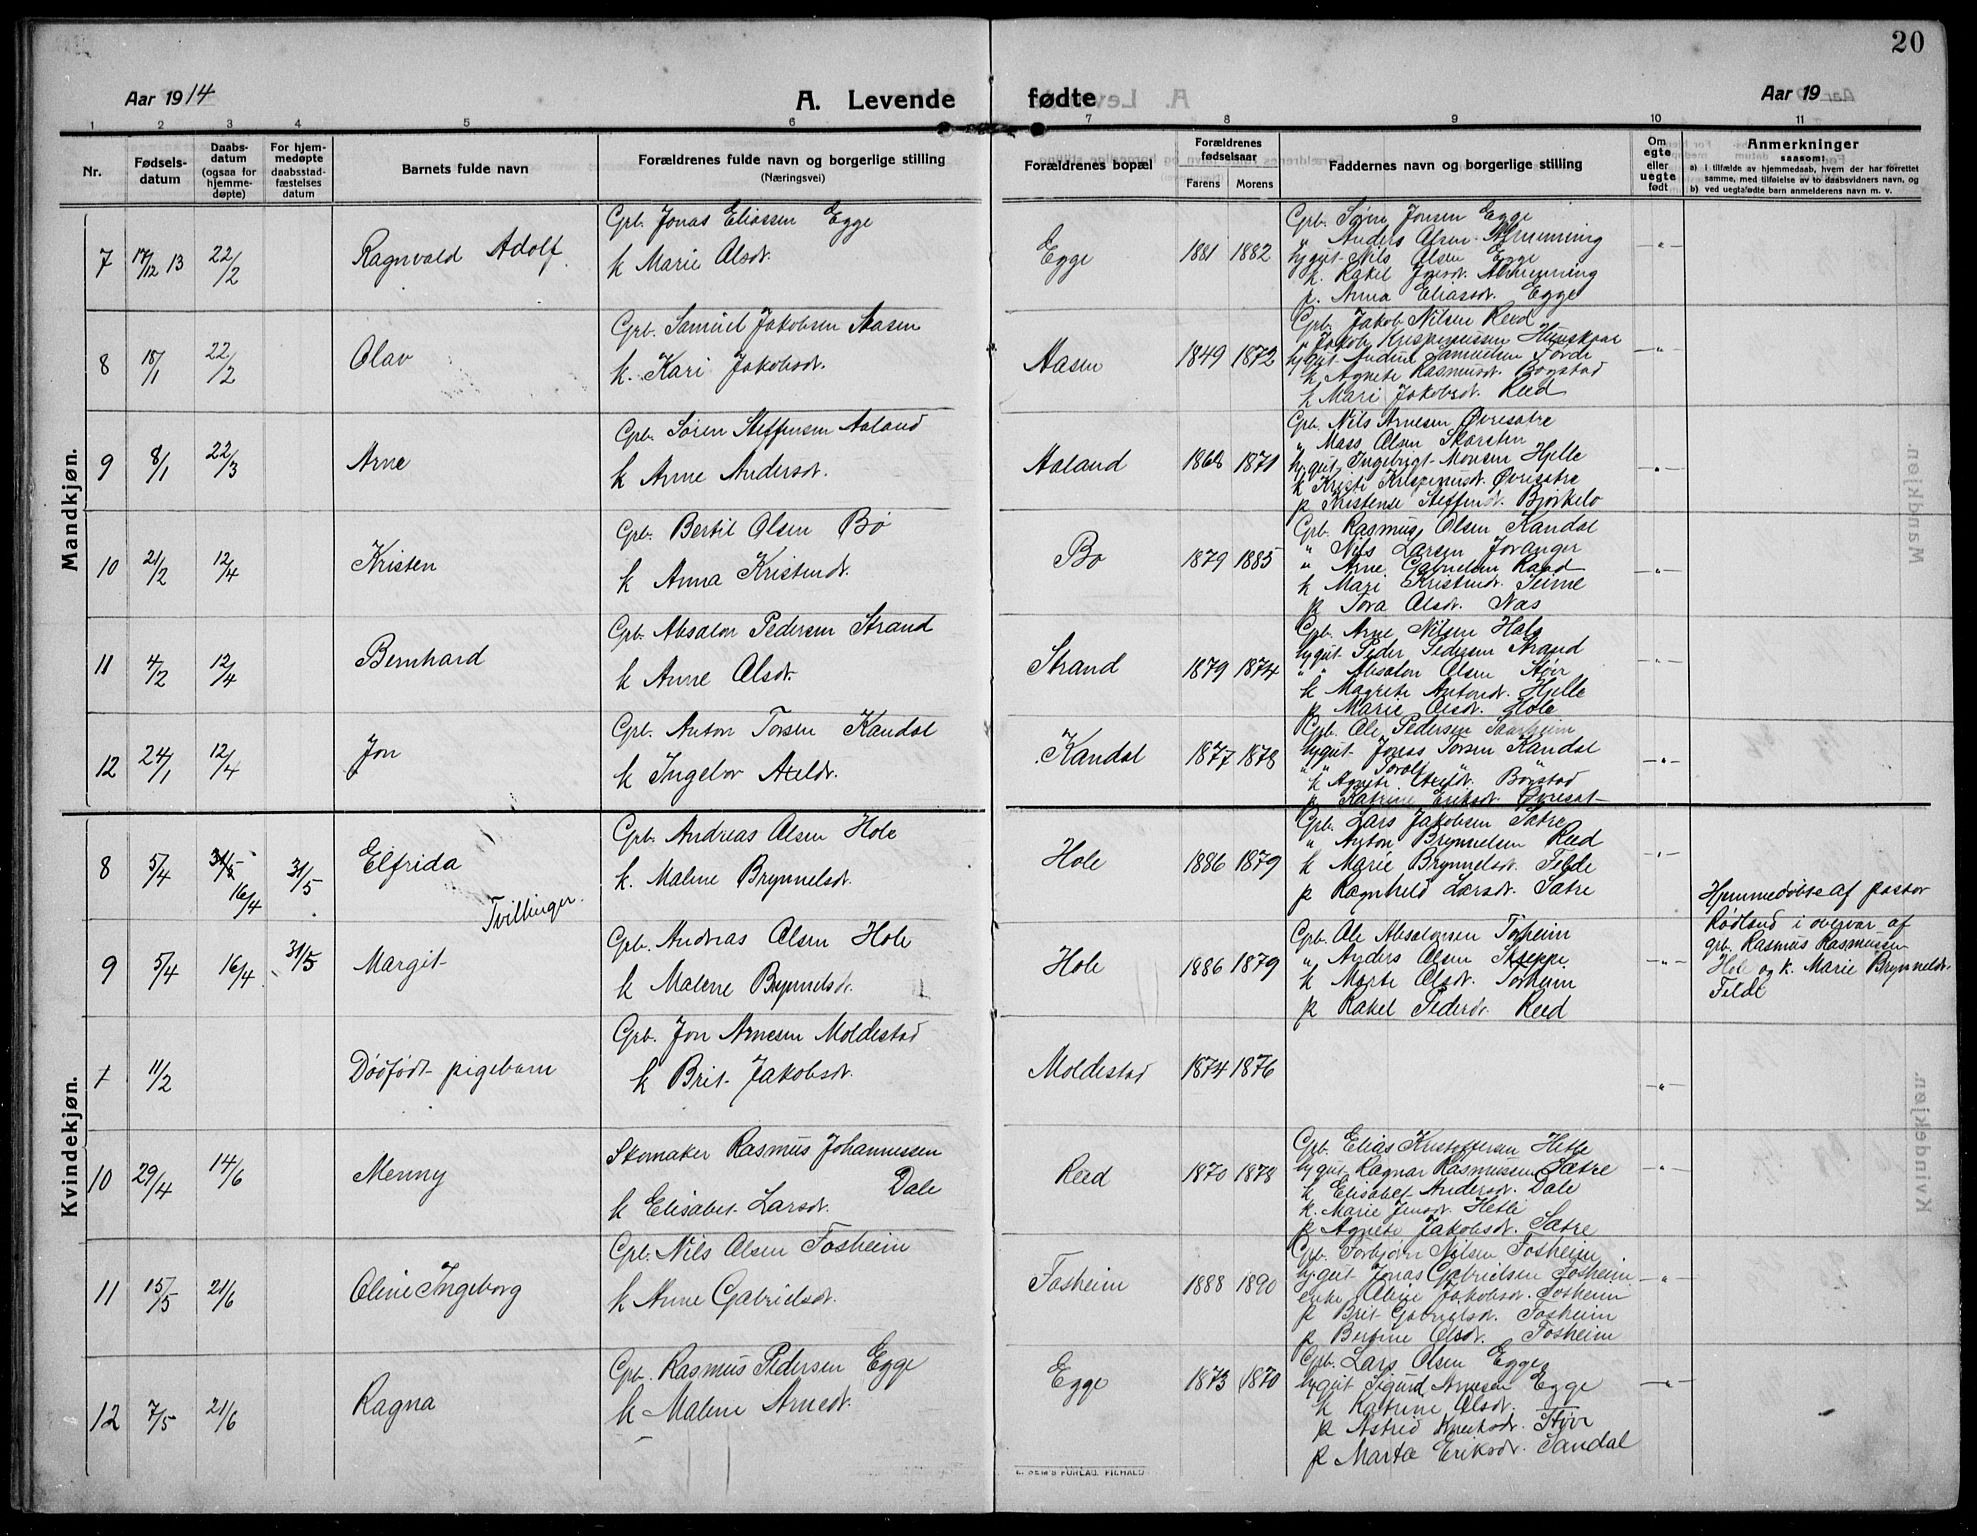 20
Aar 1914
A. Levende fødte
Aar 19
1 2 3 4 5 6 7 8 9 10 11
Nr.
Fødsels-
datum
Daabs-
datum
(ogsaa for
hjemme-
døpte)
For hjem-
medøpte
daabsstad-
fæstelses
datum
Barnets fulde navn
Forældrenes fulde navn og borgerlige stilling
(Næringsvei)
Forældrenes bopæl
Forældrenes
fødselsaar
Farens Morens
Faddernes navn og borgerlige stilling
Om
egte
eller
uegte
født
Anmerkninger
saasom:
a) i tilfælde av hjemmedaab, hvem der har forrettet
samme, med tilføielse av to daabsvidners navn, og
b) ved uegtefødte barn anmelderens navn m. v.
Mandkjøn.
7 17/12 13 22/2 Ragnvald Adolf
Grb. Jonas Eliassen Egge
k Marie Olsdt.
Egge 1881 1882
Grb. Sørn Jonsen Egge
" Anders Olsen
ungut Nils Olsen Egge
k. Rakel
p. Anna Eliasdt. Egge
8 15/1 22/2 Olav
Grb. Samuel Jakobsen Aasen
k. Kari Jakobsdt.
Aasen 1849 1872
Grb. Jakob Nilsen Reed
" Jakob Krispinussen Husskaar
ungut Andreas Samuelsen Førde
k Agnete Rasmusdt. Bogstad
k Mari Jakobsdt. Reed
9 8/1 22/3 Arne
Grb. Søren Steffensen Aaland
k Anne Andersdt.
Aaland 1868 1871
Grb. Nils Arnesen Øvresætre
" Mass Olsen Skarsten
ungut Ingebrigt Monsen Hjelle
k Kristi Krispinusdt. Øvresætre
p Kristense Steffensdt. Bjørkelo
10 21/2 12/4 Kristen
Grb. Bertil Olsen Bø
k Anna Kristensdt.
Bø 1879 1885
Grb. Rasmus Olsen Kandal
" Nils Larsen Joranger
" Arne Gabrielsen Rand
k Mari Kristensdt. Seime
p Tora Olsdt. Nas
11 4/2 12/4 Bernhard
Grb. Absalon Pedersen Strand
k Anne Olsdt.
Strand 1879 1874
Grb. Arne Nilsen Hole
ungut Peder Pedersen Strand
" " Absalon Olsen Støv
k Magrete Antonsdt. Hjelle
p Marie Olsdt. Hole
12 24/1 12/4 Jon
Grb. Anton Torsen Kandal
k Ingebor Axeldt.
Kandal 1877 1878
Grb. Ole Pedersen Saarheim
ungut Jonas Torsen Kandal
" " Torolf " "
k Agnete Axeldt. Bogstad
p Katrine Eriksdt. Øvresæt
Kvindekjøn.
8 5/4 31/5 16/4 31/5 Elfrida
Tvillinger.
Grb. Andreas Olsen Hole
k. Malene Brynnelsdt.
Hole 1886 1879
Grb. Lars Jakobsen Sætre
" Anton Brynnelsen Reed
k Marie Brynnelsdt. Felde
p Ragnhild Larsdt. Sætre
9 5/4 16/4 31/5 Margit
Grb. Andreas Olsen Hole
k Malene Brynnelsdt.
Hole 1886 1879
Grb. Ole Absalonsen Torheim
" Anders Olsen Skreppe
k Marte Olsdt. Torheim
p Rakel Pedersdt. Reed
Hjemmedøbte af pastor
Rødland i overvær af
grb. Rasmus Rasmussen
Hole og k. Marie Brynnelsdt.
Felde
1 11/2 Dødfødt pigebarn
Grb. Jon Arnesen Moldestad
k Brit Jakobsdt.
Moldestad 1874 1876
10 29/4 14/6 Menny
Skomaker Rasmus Johannessen
Dale
k Elisabet Larsdt.
Reed 1870 1878
Grb. Elias Kristoffersen Hetle
ungut Ragnar Rasmussen Sætre
k Elisabet Andersdt. Dale
k. Marie Jensdt. Hetle
p Agnete Jakobsdt. Sætre
11 15/5 21/6 Oline Ingeborg
Grb. Nils Olsen Fosheim
k Anne Gabrielsdt.
Fosheim 1888 1890
Grb. Torbjørn Nilsen Fosheim
ungut Jonas Gabrielsen Fosheim
enke Oline Jakobsdt. Fosheim
p Brit Gabrielsdt. Fosheim
p Bertine Olsdt. Fosheim
12 7/5 21/6 Ragna
Grb. Rasmus Pedersen Egge
k Malene Arnedt.
Egge 1873 1870
Grb. Lars Olsen Egge
ungut Sigurd Arnesen Egge
k Katrine Olsdt.
p Astrid Støv
p Marta Eriksdt. Sandal